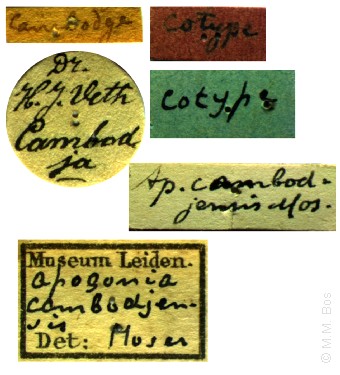 Cambodge
Cotype
Dr.
H. J. Veth
Cambod
ja
Cotype
Ap. cambod-
jensis Mos.
Museum Leiden.
apogonia
cambodjen-
sis
Det: Moser
© M.M. Bos